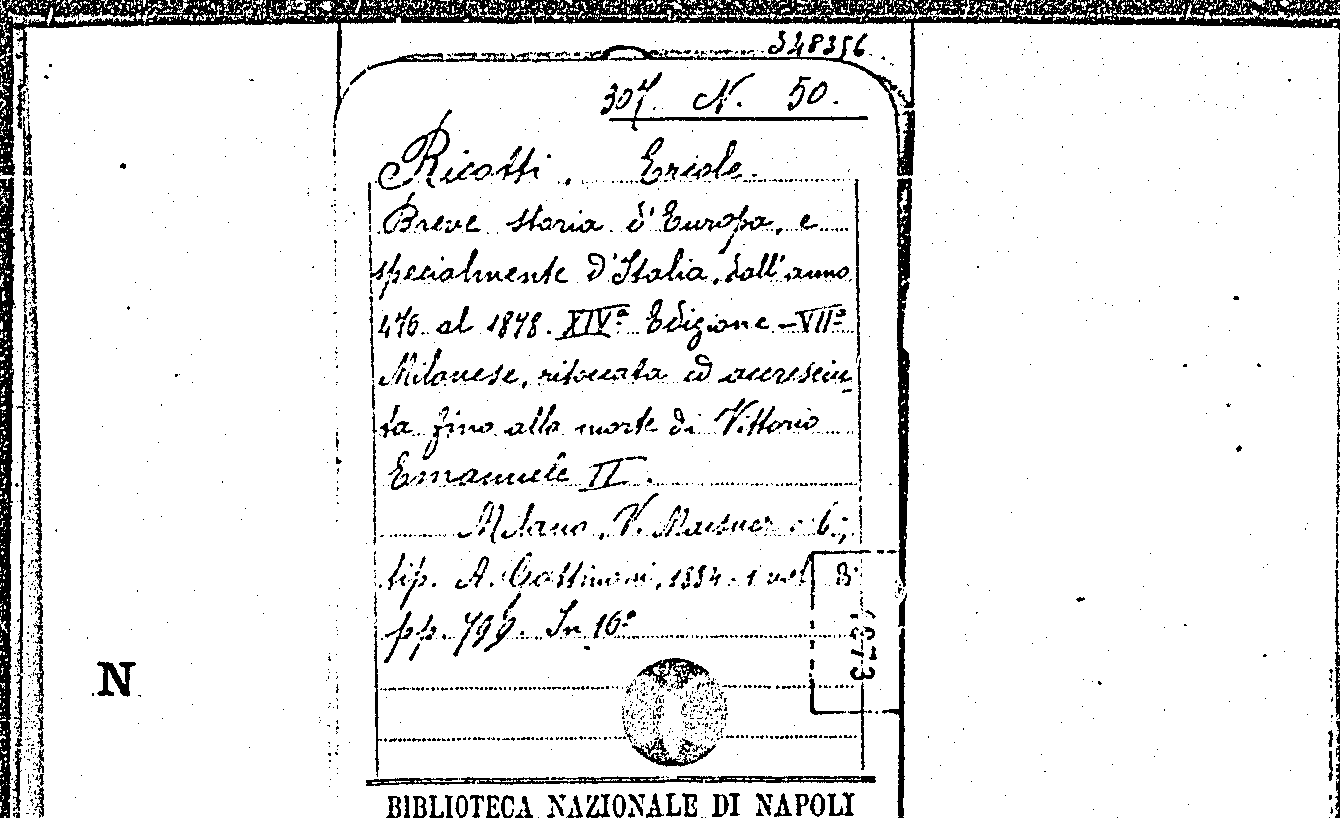 348356
307. N. 50.
Ricotti, Ercole.
Breve storia d'Europa, e
specialmente d'Italia, dall'anno
476 al 1878. XIVª Edizione - VIIª
Milanese, ritoccata ed accresciu-
ta fino alla morte di Vittorio
Emanuele II.
Milano, V. Maisner e C.;
tip. A. Gattinoni, 1884. 1 vol. 8º
pp. 799. In 16º
N
BIBLIOTECA NAZIONALE DI NAPOLI